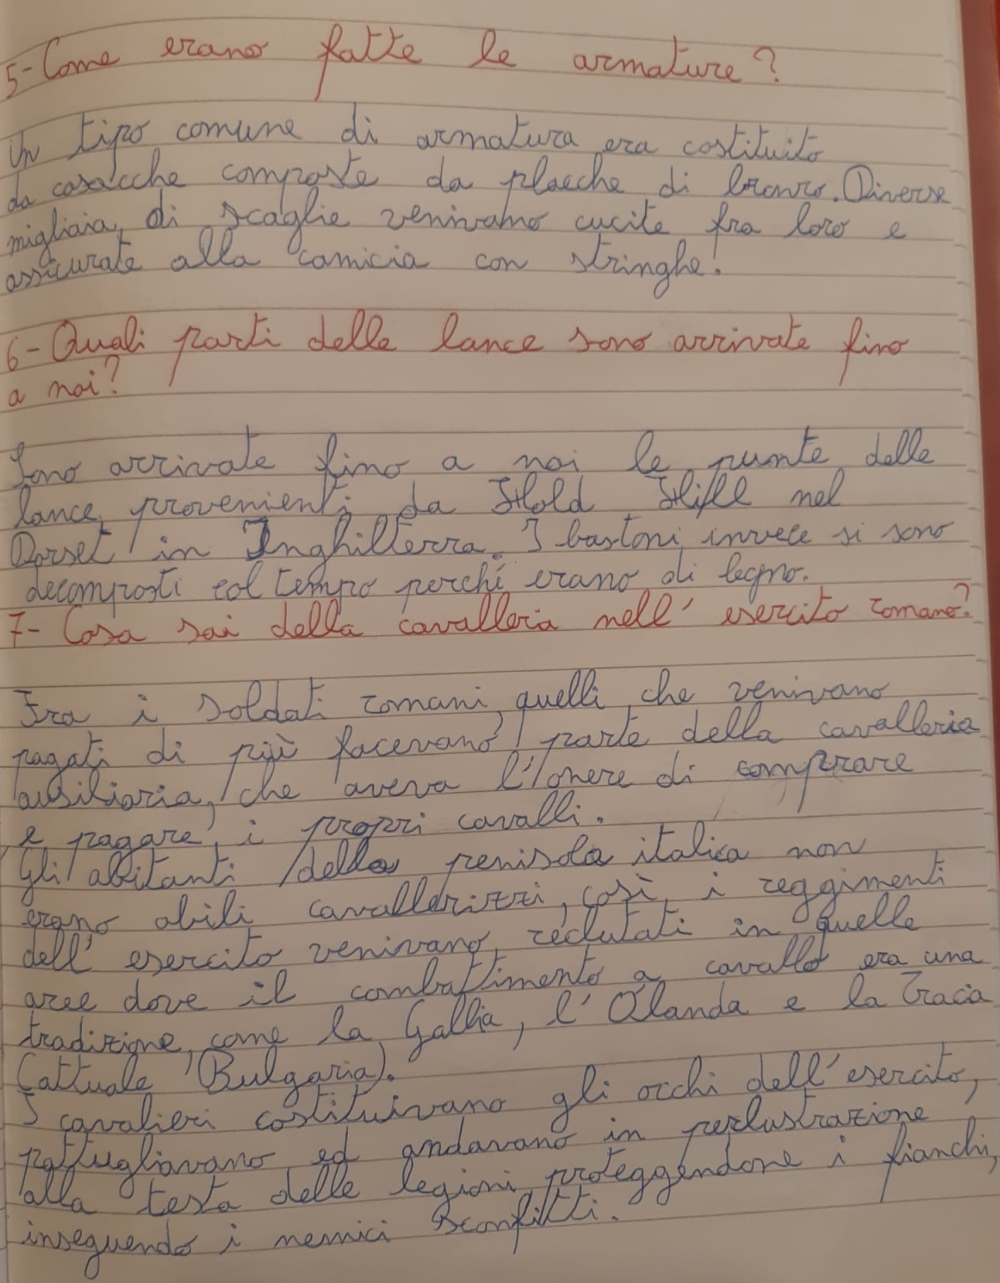 5-Come erano fatte le armature?
Un tipo comune di armatura era costituito
da casacche composte da placche di bronzo. Diverse
migliaia di scaglie venivano cucite fra loro e
assicurate alla camicia con stringhe.
6-Quali parti delle lance sono arrivate fino
a noi?
Sono arrivate fino a noi le punte delle
lance provenienti da Hold Hill nel
Dorset in Inghilterra. I bastoni invece si sono
decomposti col tempo perché erano di legno.
7-Cosa sai della cavalleria nell'esercito romano?
Fra i soldati romani, quelli che venivano
pagati di più facevano parte della cavalleria
ausiliaria, che aveva l'onere di comprare
e pagare i propri cavalli.
Gli abitanti della penisola italica non
erano abili cavallerizzi, così i reggimenti
dell'esercito venivano reclutati in quelle
aree dove il combattimento a cavallo era una
tradizione, come la Gallia, l'Olanda e la Tracia
(attuale Bulgaria).
I cavalieri costituivano gli occhi dell'esercito,
pattugliavano ed andavano in perlustrazione
alla testa delle legioni proteggendone i fianchi,
inseguendo i nemici sconfitti.